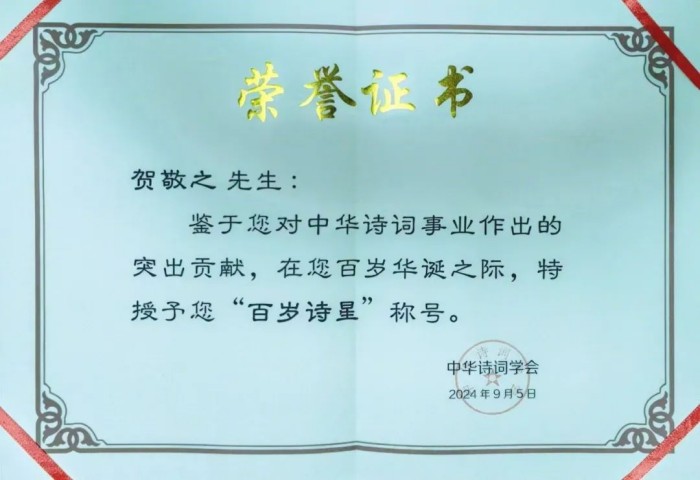 荣誉证书
贺敬之 先生：
鉴于您对中华诗词事业作出的
突出贡献，在您百岁华诞之际，特
授予您“百岁诗星”称号。
中华诗词学会
2024年9月5日